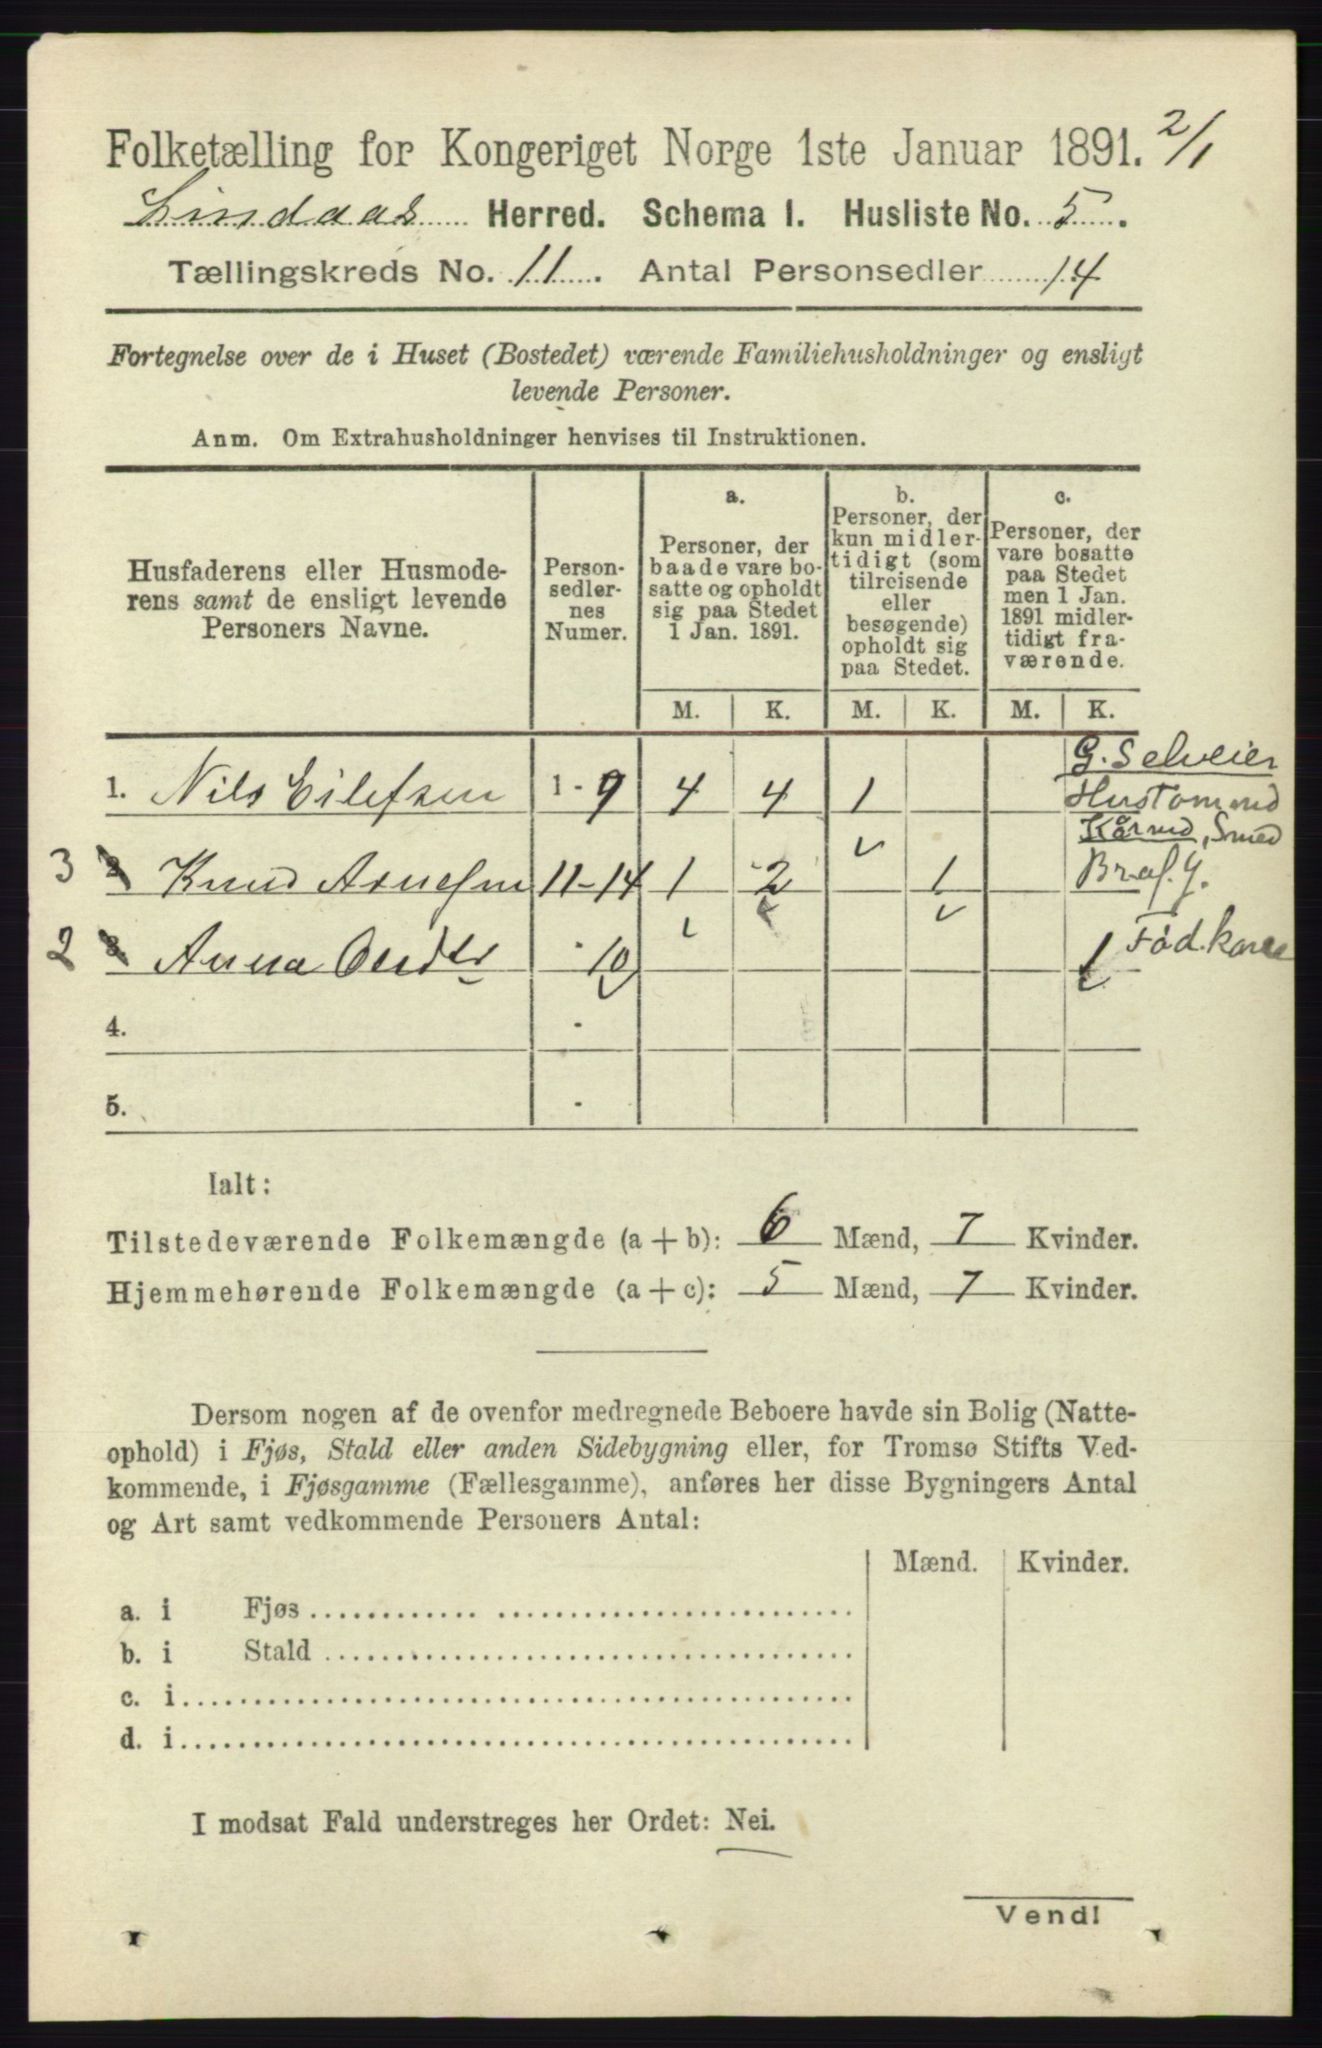 Folketælling for Kongeriget Norge 1ste Januar 1891. 2/1
Lindaas Herred. Schema I. Husliste No. 5.
Tællingskreds No. 11. Antal Personsedler 14
Fortegnelse over de i Huset (Bostedet) værende Familiehusholdninger og ensligt
levende Personer.
Anm. Om Extrahusholdninger henvises til Instruktionen.
Husfaderens eller Husmode-
rens samt de ensligt levende
Personers Navne.
Person-
sedler-
nes
Numer.
a.
Personer, der
baade vare bo-
satte og opholdt
sig paa Stedet
1 Jan. 1891.
b.
Personer, der
kun midler-
tidigt (som
tilreisende
eller
besøgende)
opholdt sig
paa Stedet.
c.
Personer, der
vare bosatte
paa Stedet
men 1 Jan.
1891 midler-
tidigt fra-
værende.
M. K. M. K. M. K.
G. Selveier
1. Nils Eilefsen 1-9 4 4 1
Kårmd, Smed
3 2 Knud Arnesen 11-14 1 2 1
2 3 Anna 10 1 Fød.
4. -
5. -
Ialt:
Tilstedeværende Folkemængde (a + b): 6 Mænd, 7 Kvinder.
Hjemmehørende Folkemængde (a + c): 5 Mænd, 7 Kvinder.
Dersom nogen af de ovenfor medregnede Beboere havde sin Bolig (Natte-
ophold) i Fjøs, Stald eller anden Sidebygning eller, for Tromsø Stifts Ved-
kommende, i Fjøsgamme (Fællesgamme), anføres her disse Bygningers Antal
og Art samt vedkommende Personers Antal:
Mænd. Kvinder.
a. i Fjøs
b. i Stald
c. i
d. i
I modsat Fald understreges her Ordet: Nei.
Vend!